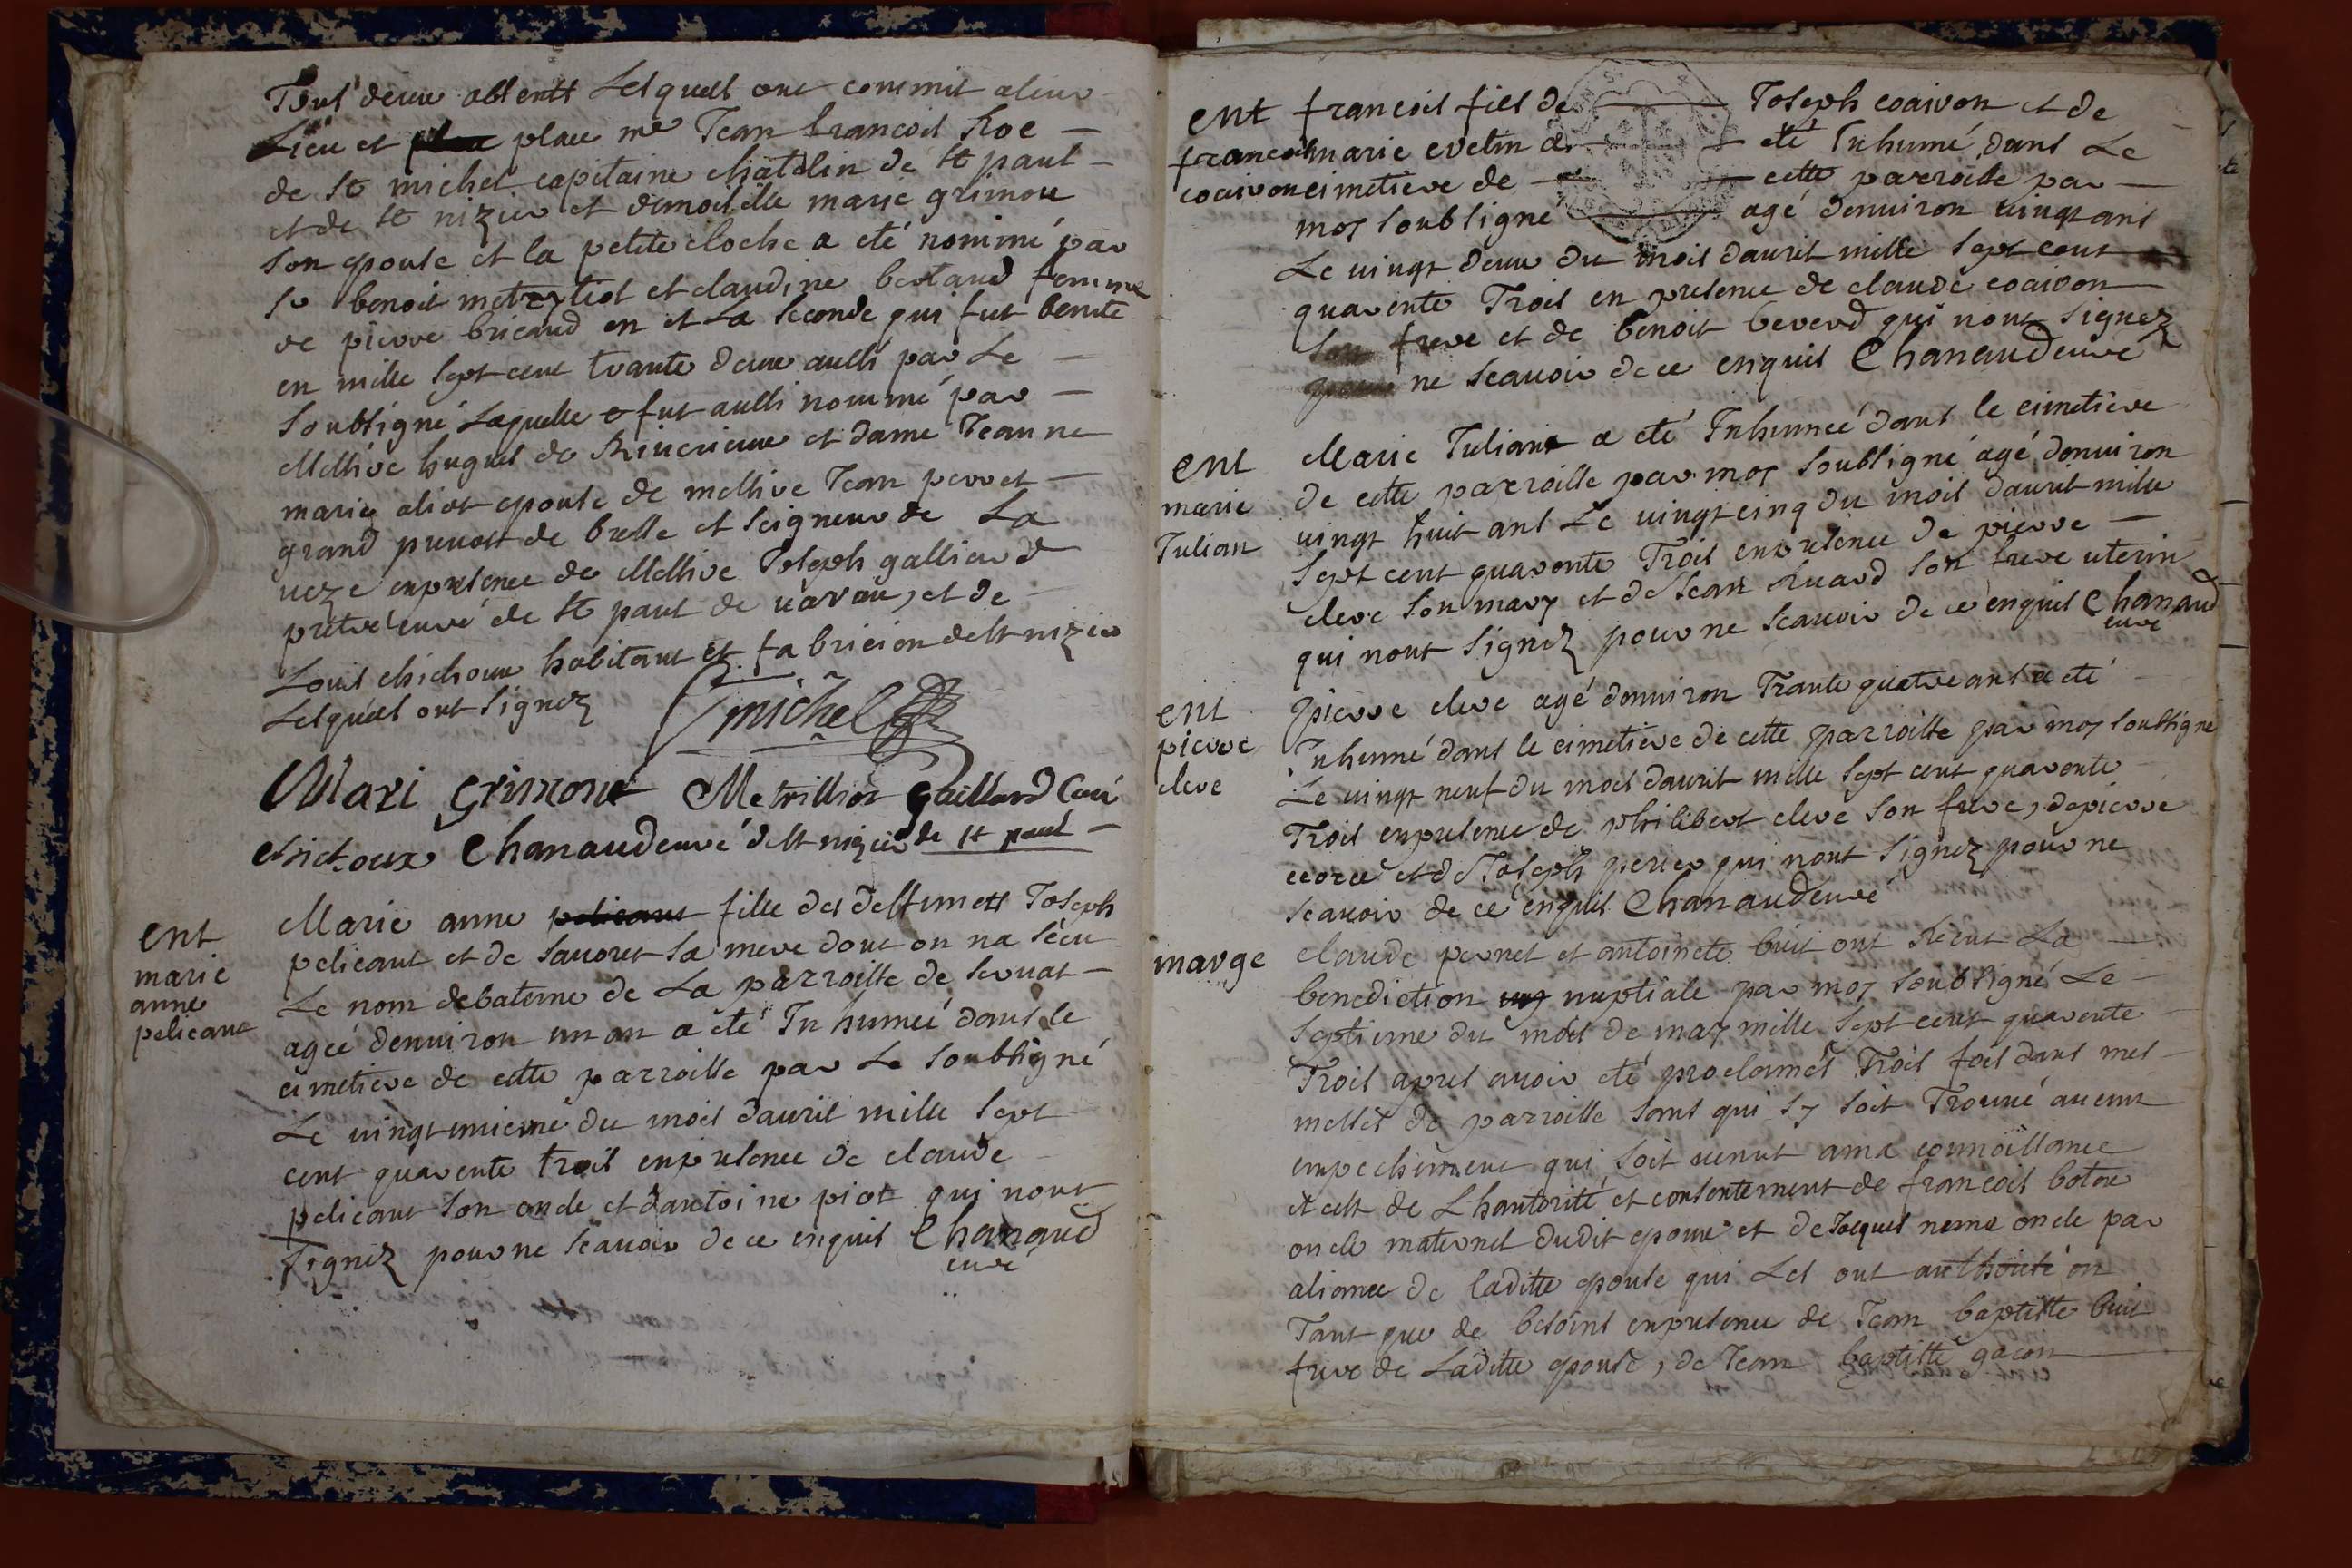 Tous deux absents Lesquels ont commit aleur
Lieu et place me Jean francois Roe
de st michel capitaine chatelin de st paul
et de st nizier et demoiselle marie grimone
son epouse et la petite cloche a eté nommé par
sr benoit metrillot et claudine bertaud femme
de pierre bricaud en et La seconde qui fut benite
en mille sept cent trante deux aussi par Le
soubsigné Laquelle fut aussi nommé par
Messire hugues de Rivericux et dame Jeanne
marie aliot epouse de messire Jean perret
grand prevost de bresse et seigneur de La
veze enpresence de Messire Joseph galliard
pretre curé de st paul de varax, et de
Louis chichoux habitant et fabricion de st nizier
Lesquels ont signez michel
Mari grimont Metrillios gaillard Curé
chichoux Chanaud curé de st nizier de st paul
ent
marie
anne
pelicant
Marie anne fille des deffunets Joseph
pelicant et de sauoret sa mere dont on na sceu
Le nom debateme de La parroisse de seruat
ageé denuiron un an a eté Inhumeé dans le
cimetiere de cette parroisse par Le soubsigné
Le uingt unieme du mois dauril mille sept
cent quarente trois enpresence de claude
pelicant son oncle et dantoine piot qui nont
signez pour ne scauoir de ce enquis Chanaud
curé
ent
francois
coaivon
francois fils de Joseph coaivon et de
marie evelin a eté Inhumé dans Le
cimetiere de cette parroisse par
moy soubsigné agé denuiron uingt ans
Le uingt deux du mois dauril mille sept cent
quarente Trois en presence de claude coaivon
son frere et de benoit beverd qui nont signez
pour ne scauoir de ce enquis Chanaud curé
ent
marie
Julian
Marie Juliane a eté Inhumeé dans le cimetiere
de cette parroisse par moy soubsigné agé denuiron
uingt huit ans Le uingt cinq du mois dauril mille
sept cent quarente Trois enpresence de pierre
cleve son mary et de Jean Ruard son frere uterin
qui nont signez pour ne scauoir de ce enquis Chanaud
curé
ent
pierre
cleve
pierre cleve agé denuiron Trante quatre ans a eté
Inhumé dans le cimetiere de cette parroisse par moy soubsigné
Le uingt neuf du mois dauril mille sept cent quarente
Trois enpresence de philibert cleve son frere, de pierre
et de Joseph perier qui nont signez pour ne
scauoir de ce enquis Chanaud curé
marge
claude pernet et antoinete buit ont Receut La
benediction nuptiale par moy soubsigné Le
septieme du mois de may mille sept cent quarente
Trois apres avoir eté proclamés Trois fois dans mes
messes de parroisse sans qui sy soit Trouué aucune
empechement qui soit uenut ama connoissance
et cest de Lhautorité et consentement de francois boton
oncle maternel dudit epoux et de Jacques neme oncle par
aliance de laditte epouse qui Les ont authorité on
Tant que de besoins enpresence de Jean baptiste buit
frere de Laditte epouse, de Jean baptiste gacon